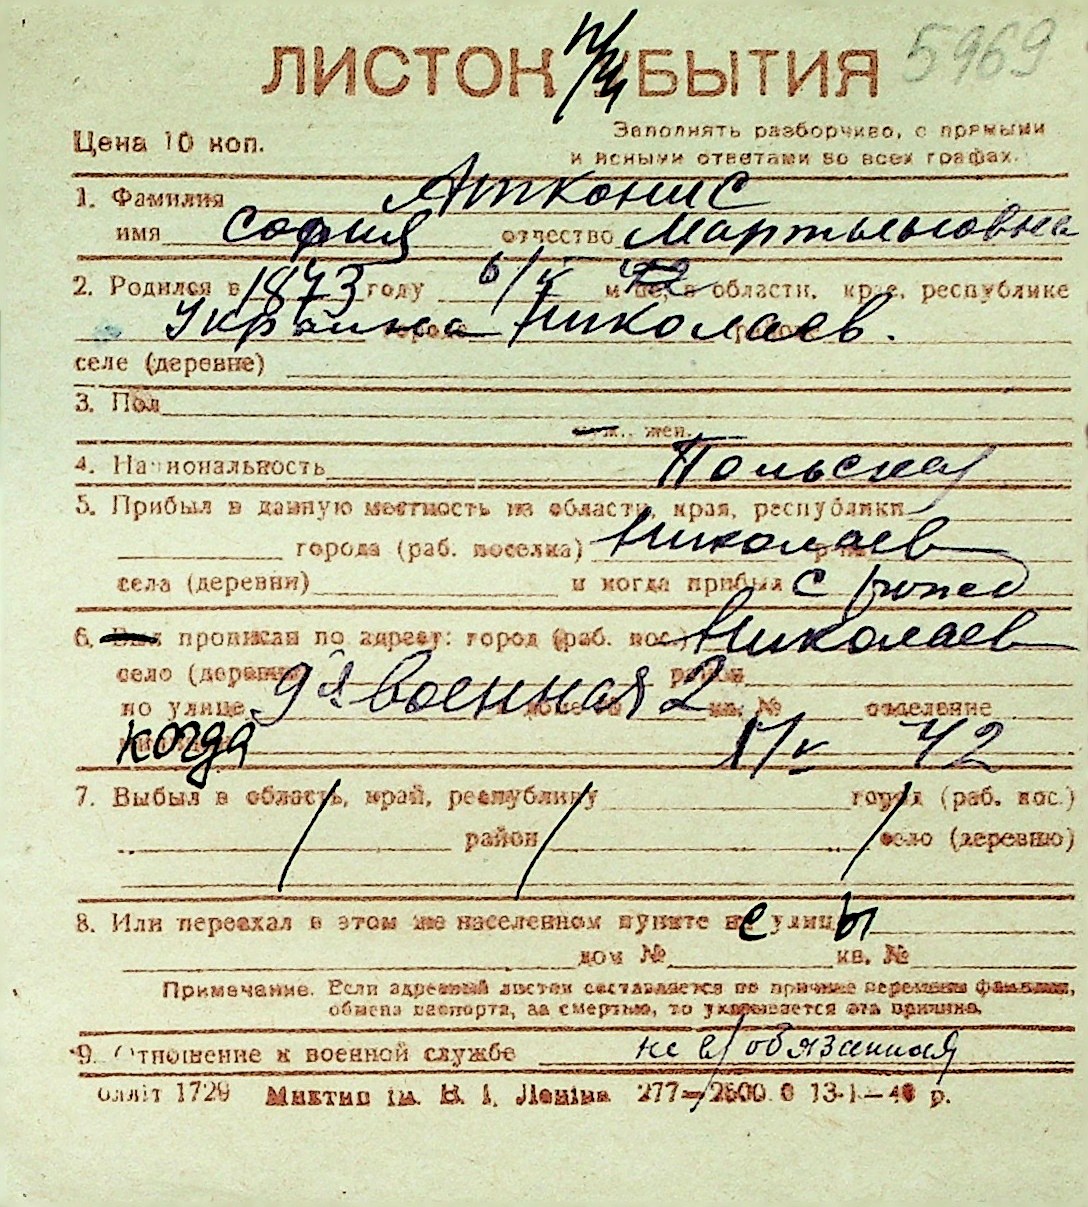 5969
ЛИСТОК УБЫТИЯ
Цена 10 коп.
Заполнять разборчиво, с прямыми
и ясными ответами во всех графах.
1. Фамилия Атконис
имя София отчество Мартыновна
2. Родился в 1873 году 6/V м-це, в области, крае, республике
Украина городе Николаев.
селе (деревне)
3. Пол
муж., жен.
4. Национальность Польская
5. Прибыл в данную местность из области, края, республики
города (раб. поселка) Николаев
села (деревни) и когда прибыл с рожд
6. Был прописан по адресу: город (раб. пос.) Николаев
село (деревня) район
по улице 9я Военная 2 кв. № отделение
когда 17/V 42
7. Выбыл в область, край, республику город (раб. пос.)
район село (деревню)
8. Или переехал в этом же населенном пункте не улицы
дом № кв. №
Примечание. Если адресный листок составляется по причине перемены фамилии,
обмена паспорта, за смертью, то указывается эта причина.
9. Отношение к военной службе не в/обязанная
блліт 1729 Миктип ім. В. І. Леніна 277—2500.0 13-I—40 р.